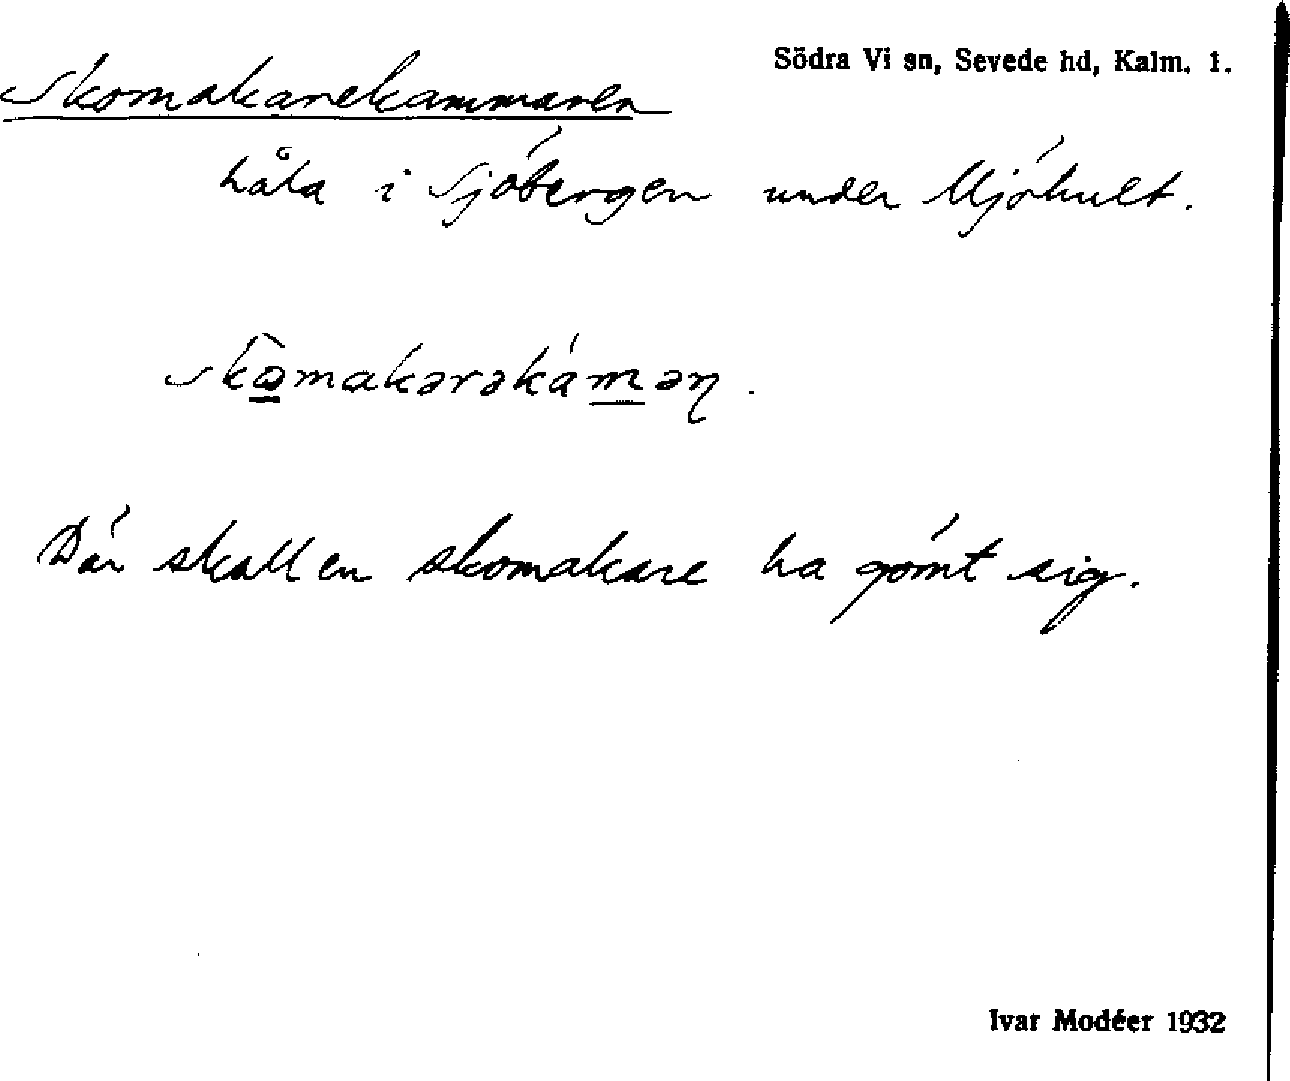 Södra Vi sn, Sevede hd, Kalm. l.
Skomakarekammaren
håla i Sjöbergen under Mjöhult.
skòmakarəkámən.
Där skall en skomakare ha gömt sig.
Ivar Modéer 1932